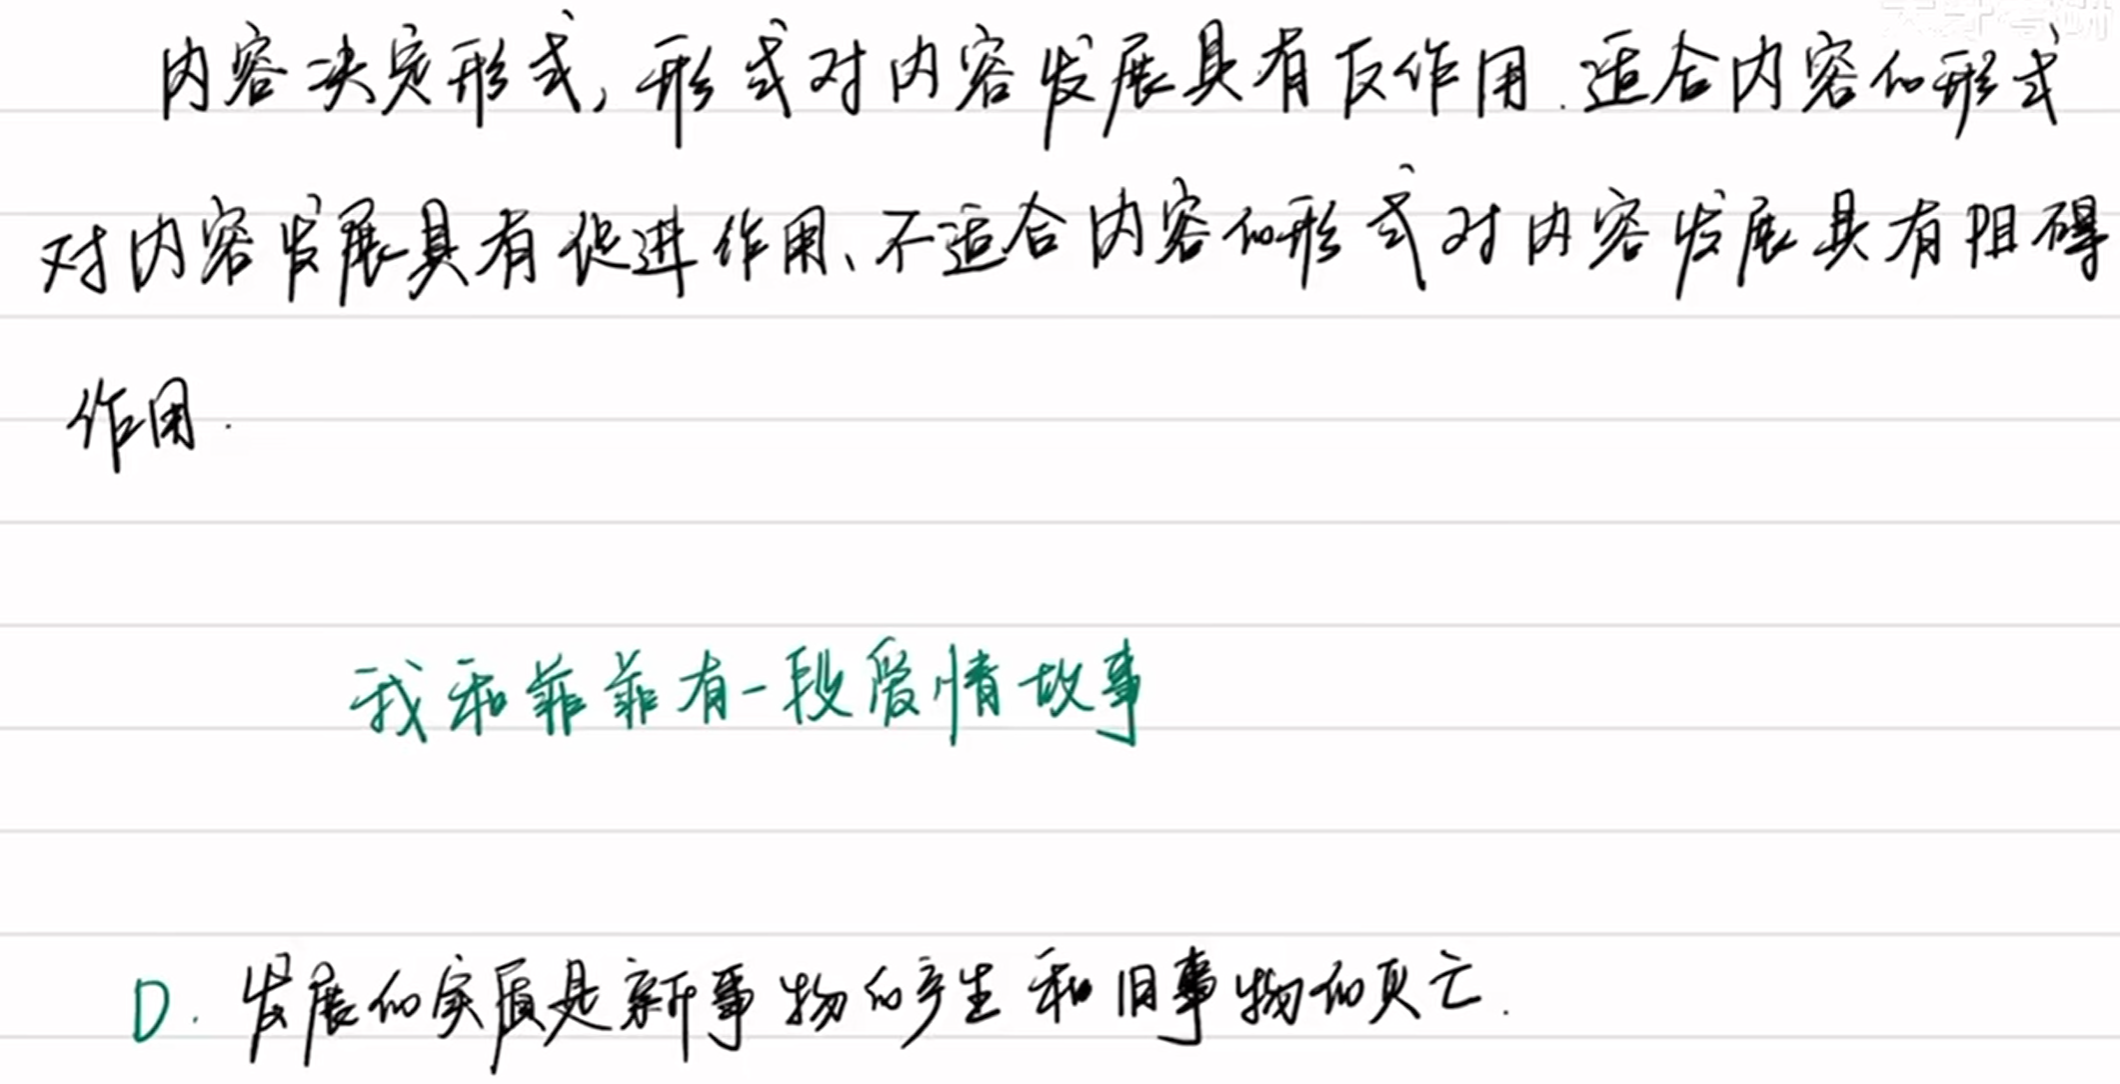 内容决定形式,形式对内容发展具有反作用.适合内容的形式
对内容发展具有促进作用、不适合内容的形式对内容发展具有阻碍
作用.
我和菲菲有一段爱情故事
D.发展的实质是新事物的产生和旧事物的灭亡.